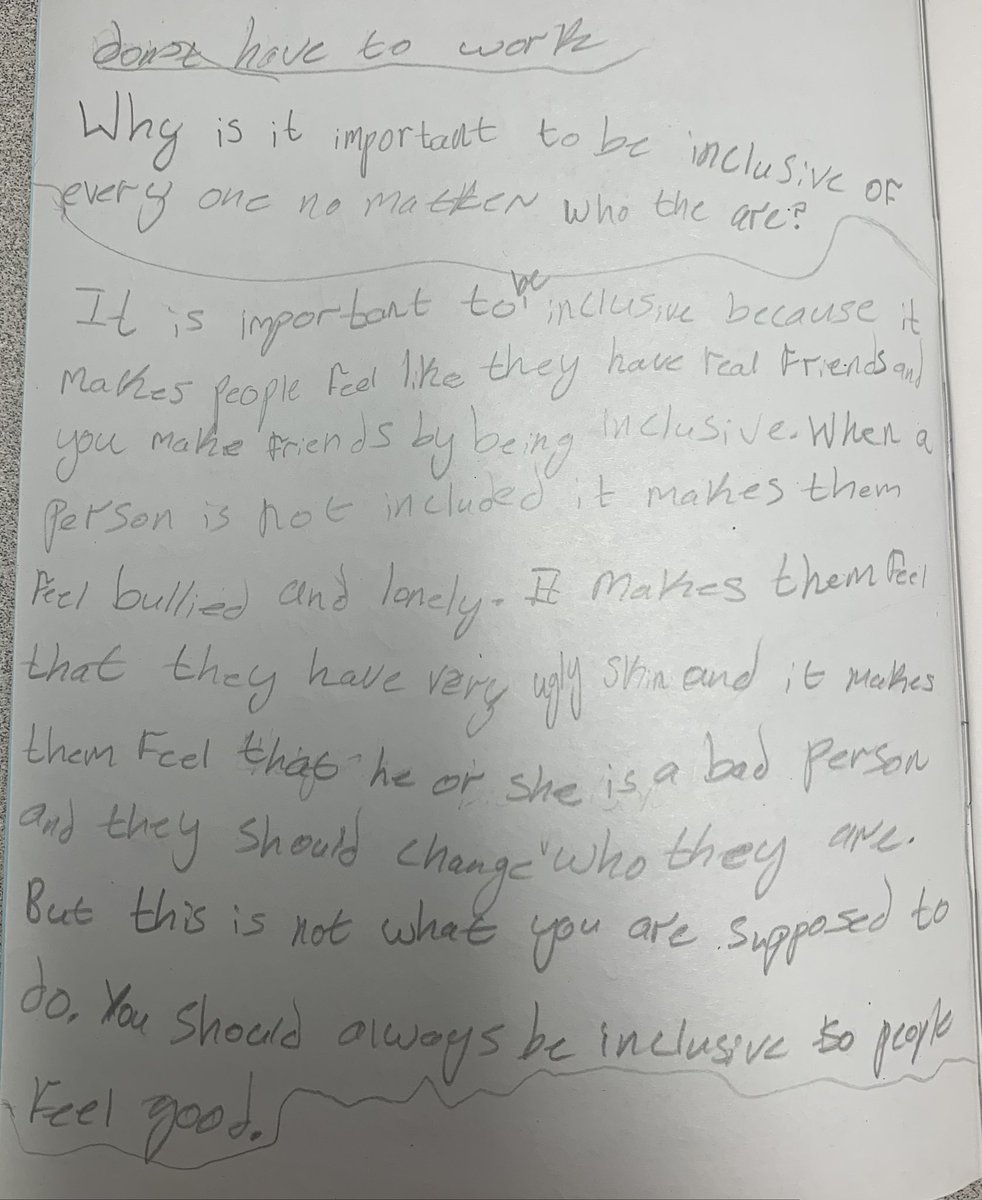 don't have to work
Why is it important to be inclusive of
every one no matter who the are?
It is important to be inclusive because it
makes people feel like they have real friends and
you make friends by being inclusive. When a
person is not included it makes them
feel bullied and lonely. It makes them feel
that they have very ugly skin and it makes
them feel that he or she is a bad person
and they should change who they are.
But this is not what you are supposed to
do. You should always be inclusive so people
feel good.